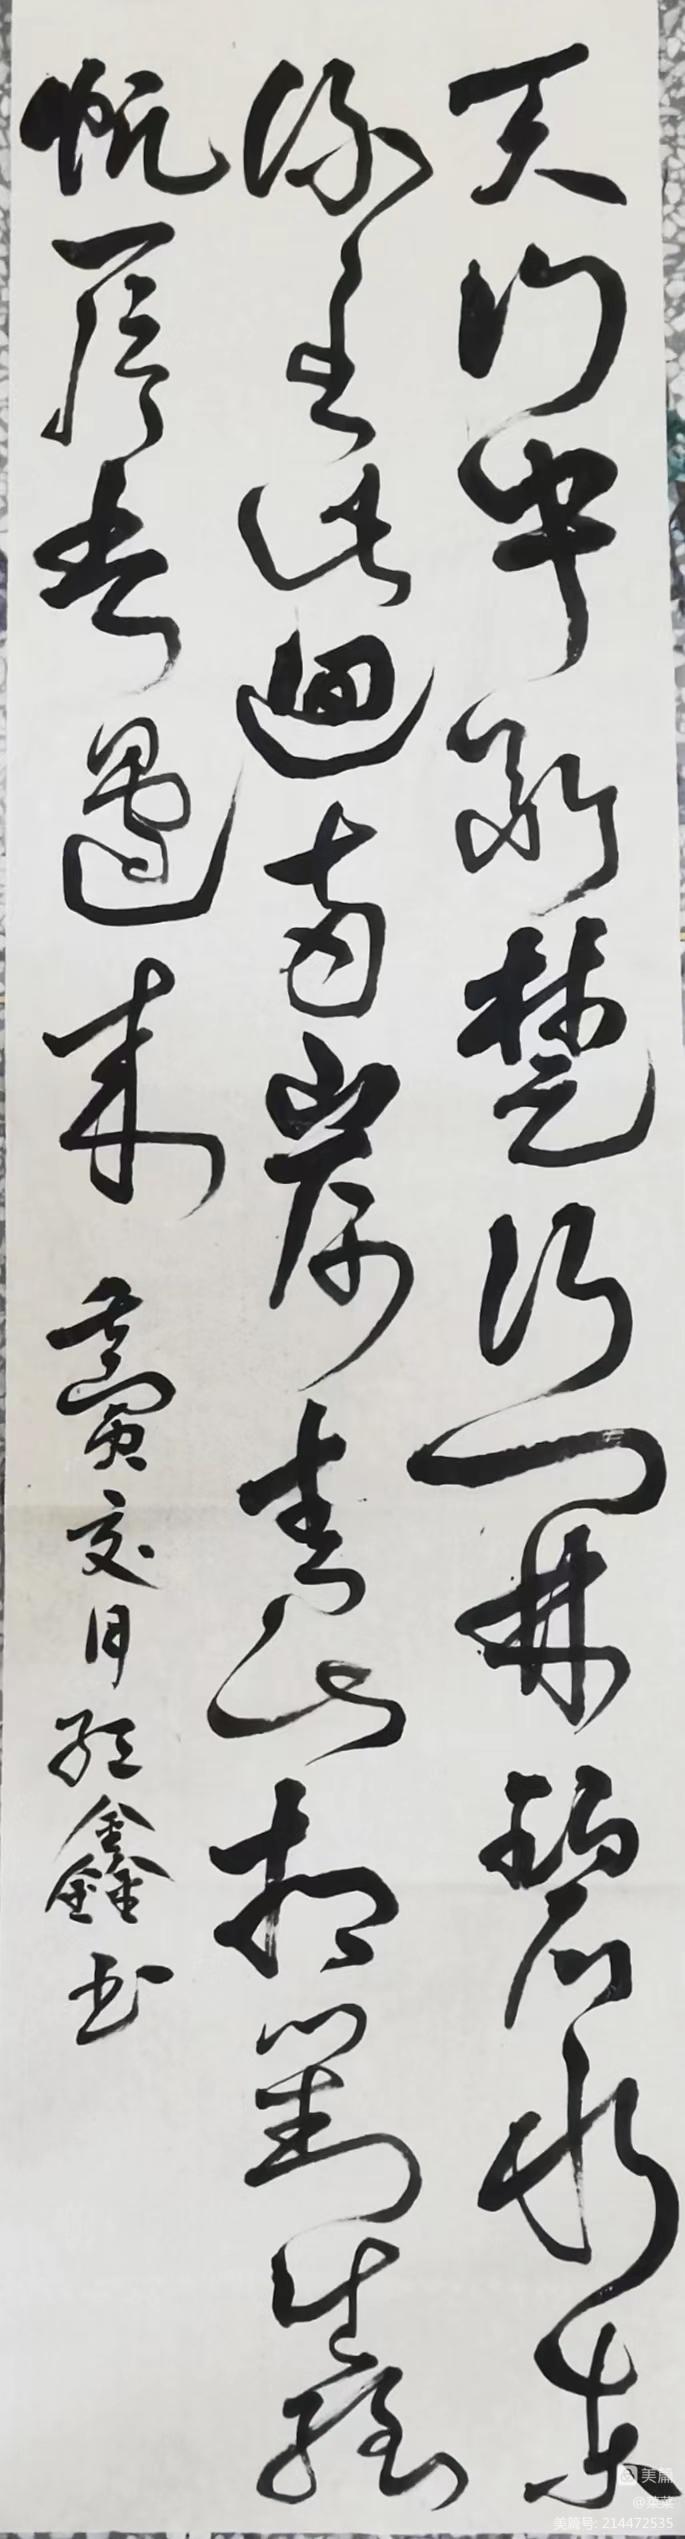 天门中断楚江開碧水东
流至此迴两岸青山相對出孤
帆一片邊来
寅月鑫书
美篇
@菜菜
美篇号: 214472535